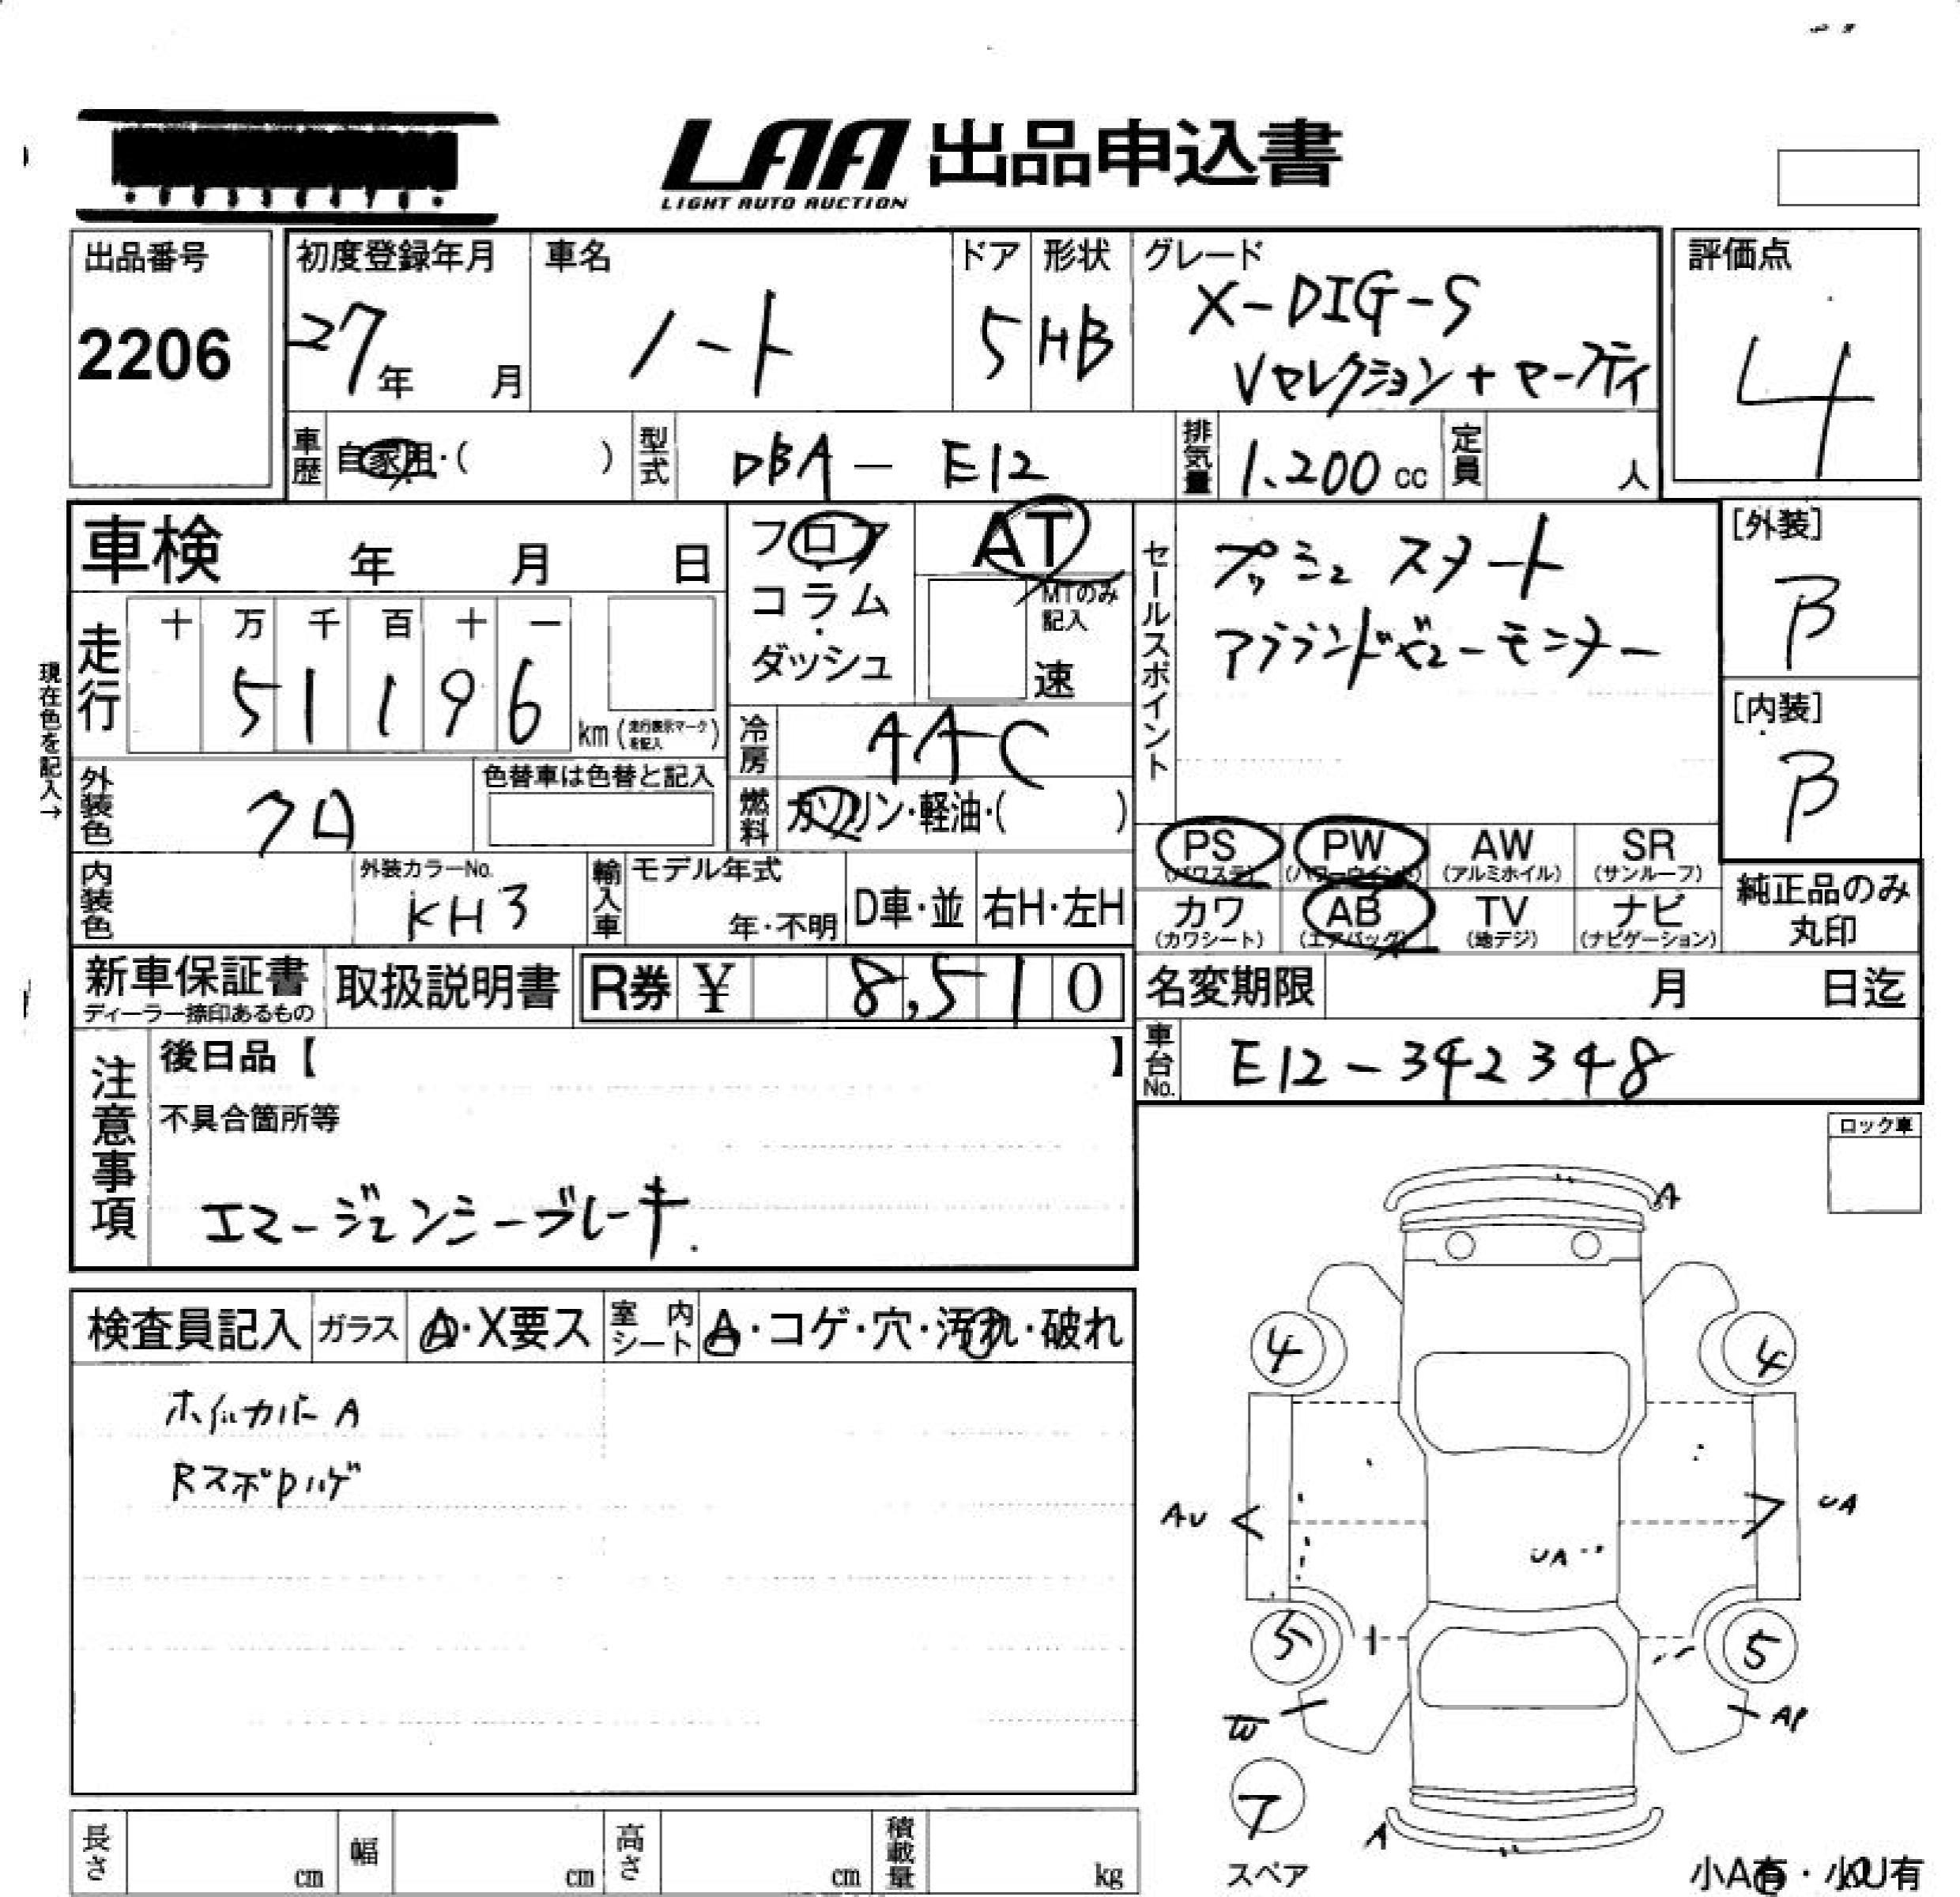 LAA 出品申込書
LIGHT AUTO AUCTION
出品番号
2206
初度登録年月
27年 月
車名
ノート
ドア
5
形状
HB
グレード
X-DIG-S
Vセレクション+セーフティ
評価点
4
車歴 自家用・( )
型式 DBA-E12
排気量 1.200cc
定員 人
車検 年 月 日
フロア
コラム・
ダッシュ
AT
MTのみ
記入
速
セールスポイント
プッシュスタート
アラウンドビューモニター
[外装]
B
[内装]
B
現在色を記入→
走行
十 万 千 百 十 一
5 1 1 9 6 km (走行表示マークを記入)
冷房 AAC
外装色 クロ
色替車は色替と記入
燃料 ガソリン・軽油・( )
PS (パワステ) PW (パワーウインド) AW (アルミホイル) SR (サンルーフ)
カワ (カワシート) AB (エアバッグ) TV (地デジ) ナビ (ナビゲーション)
純正品のみ
丸印
内装色
外装カラーNo.
KH3
輸入車
モデル年式
年・不明
D車・並
右H・左H
新車保証書
ディーラー捺印あるもの
取扱説明書
R券 ¥ 8,510
名変期限 月 日迄
車台No. E12-342348
注意事項
後日品【 】
不具合箇所等
エマージェンシーブレーキ.
ロック車
検査員記入 ガラス A・X要ス 室内シート A・コゲ・穴・汚れ・破れ
ホイルカバーA
Rスポロハゲ
A
4 4
AU UA
UA
5 5
W AP
T
スペア
A
長さ cm 幅 cm 高さ cm 積載量 kg
小A有・小U有